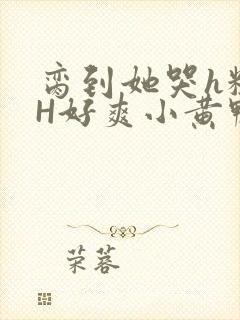 脔到她哭h粗
H好爽小黄鸭
荣蓉